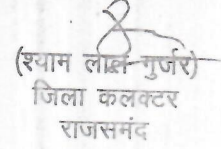 (श्याम लाल गुर्जर)
जिला कलक्टर
राजसमंद